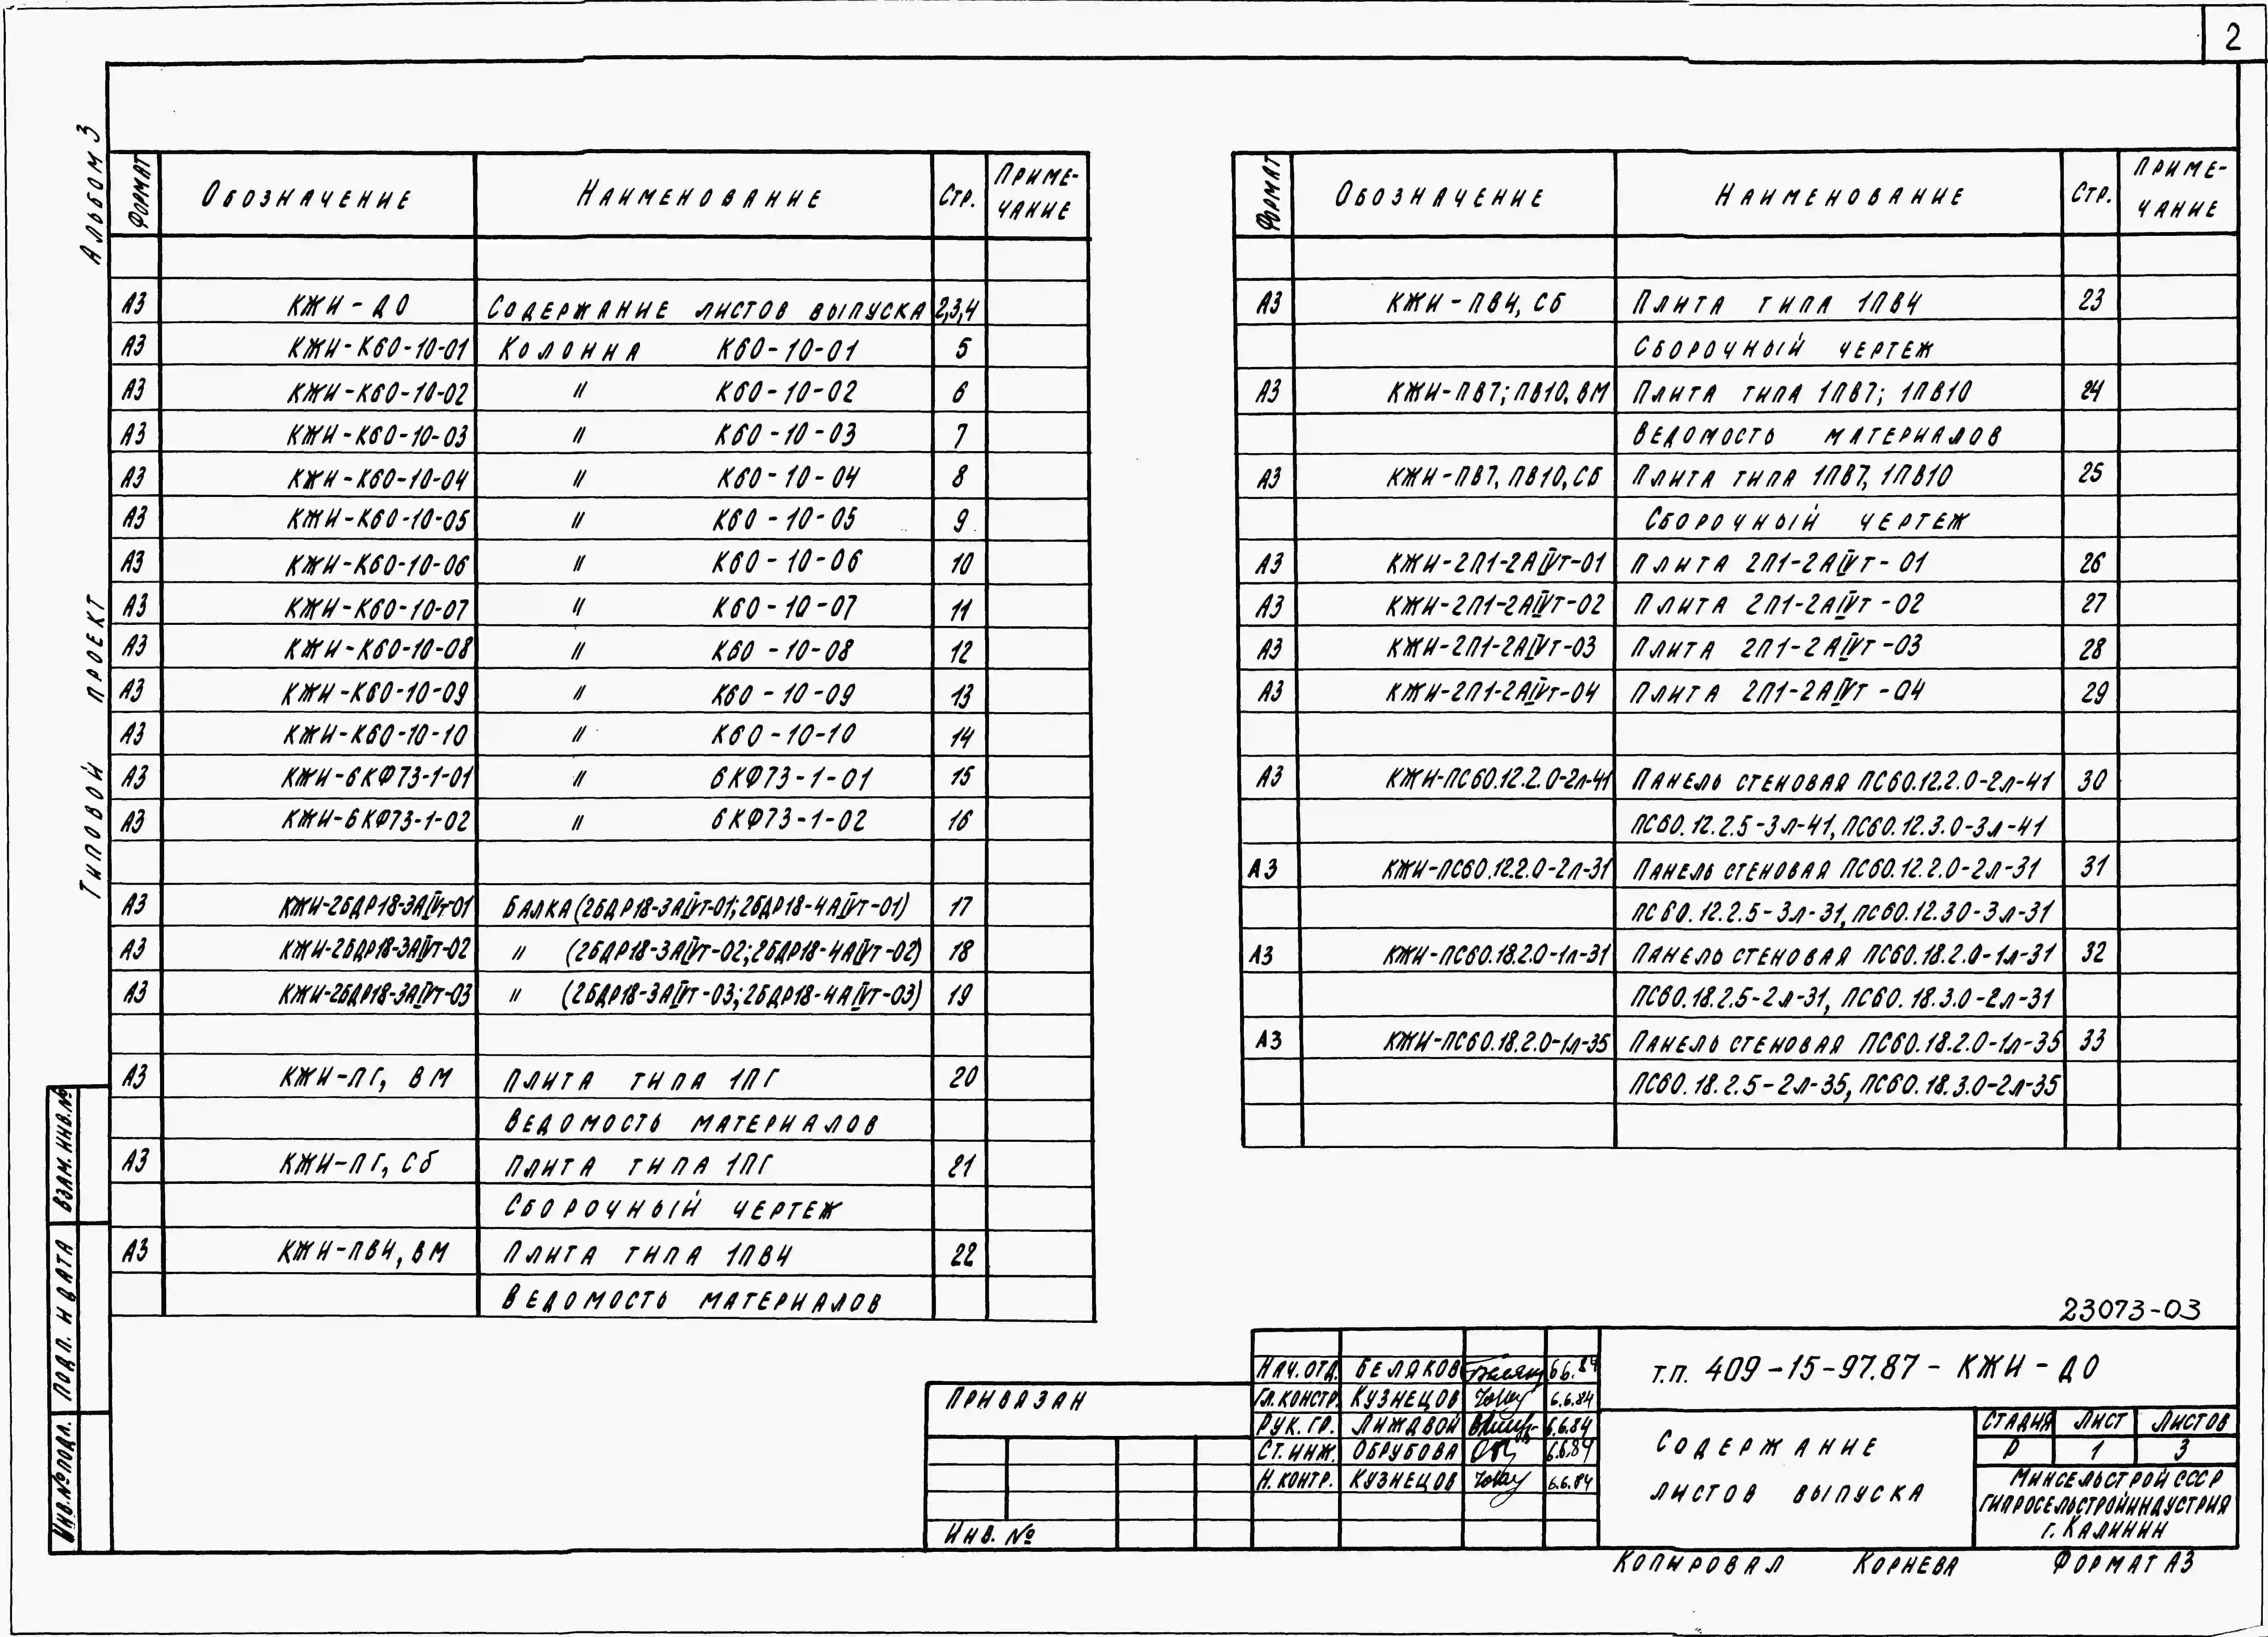 2
Альбом 3
Типовой проект
Формат Обозначение Наименование Стр. Приме-
чание
А3 КЖИ-ДО Содержание листов выпуска 2,3,4
А3 КЖИ-К60-10-01 Колонна К60-10-01 5
А3 КЖИ-К60-10-02 " К60-10-02 6
А3 КЖИ-К60-10-03 " К60-10-03 7
А3 КЖИ-К60-10-04 " К60-10-04 8
А3 КЖИ-К60-10-05 " К60-10-05 9
А3 КЖИ-К60-10-06 " К60-10-06 10
А3 КЖИ-К60-10-07 " К60-10-07 11
А3 КЖИ-К60-10-08 " К60-10-08 12
А3 КЖИ-К60-10-09 " К60-10-09 13
А3 КЖИ-К60-10-10 " К60-10-10 14
А3 КЖИ-6КФ73-1-01 " 6КФ73-1-01 15
А3 КЖИ-6КФ73-1-02 " 6КФ73-1-02 16
А3 КЖИ-2БДР18-3АIVт-01 Балка (2БДР18-3АIVт-01; 2БДР18-4АIVт-01) 17
А3 КЖИ-2БДР18-3АIVт-02 " (2БДР18-3АIVт-02; 2БДР18-4АIVт-02) 18
А3 КЖИ-2БДР18-3АIVт-03 " (2БДР18-3АIVт-03; 2БДР18-4АIVт-03) 19
А3 КЖИ-ПГ, ВМ Плита типа 1ПГ 20
Ведомость материалов
А3 КЖИ-ПГ, СБ Плита типа 1ПГ 21
Сборочный чертеж
А3 КЖИ-ПВ4, ВМ Плита типа 1ПВ4 22
Ведомость материалов
Формат Обозначение Наименование Стр. Приме-
чание
А3 КЖИ-ПВ4, СБ Плита типа 1ПВ4 23
Сборочный чертеж
А3 КЖИ-ПВ7; ПВ10, ВМ Плита типа 1ПВ7; 1ПВ10 24
Ведомость материалов
А3 КЖИ-ПВ7, ПВ10, СБ Плита типа 1ПВ7, 1ПВ10 25
Сборочный чертеж
А3 КЖИ-2П1-2АIVт-01 Плита 2П1-2АIVт-01 26
А3 КЖИ-2П1-2АIVт-02 Плита 2П1-2АIVт-02 27
А3 КЖИ-2П1-2АIVт-03 Плита 2П1-2АIVт-03 28
А3 КЖИ-2П1-2АIVт-04 Плита 2П1-2АIVт-04 29
А3 КЖИ-ПС60.12.2.0-2л-41 Панель стеновая ПС60.12.2.0-2л-41 30
ПС60.12.2.5-3л-41, ПС60.12.3.0-3л-41
А3 КЖИ-ПС60.12.2.0-2л-31 Панель стеновая ПС60.12.2.0-2л-31 31
ПС60.12.2.5-3л-31, ПС60.12.30-3л-31
А3 КЖИ-ПС60.18.2.0-1л-31 Панель стеновая ПС60.18.2.0-1л-31 32
ПС60.18.2.5-2л-31, ПС60.18.3.0-2л-31
А3 КЖИ-ПС60.18.2.0-1л-35 Панель стеновая ПС60.18.2.0-1л-35 33
ПС60.18.2.5-2л-35, ПС60.18.3.0-2л-35
Взам. инв. №
Подп. и дата
Инв. № подл.
23073-03
Привязан
Инв. №
Нач. отд. Беляков 6.6.84
Гл. констр. Кузнецов 6.6.84
Рук. гр. Лиждвой 6.6.84
Ст. инж. Обрубова 6.6.84
Н. контр. Кузнецов 6.6.84
т.п. 409-15-97.87-КЖИ-ДО
Содержание
листов выпуска
Стадия Лист Листов
Р 1 3
Минсельстрой СССР
Гипросельстройиндустрия
г. Калинин
Копировал Корнева Формат А3